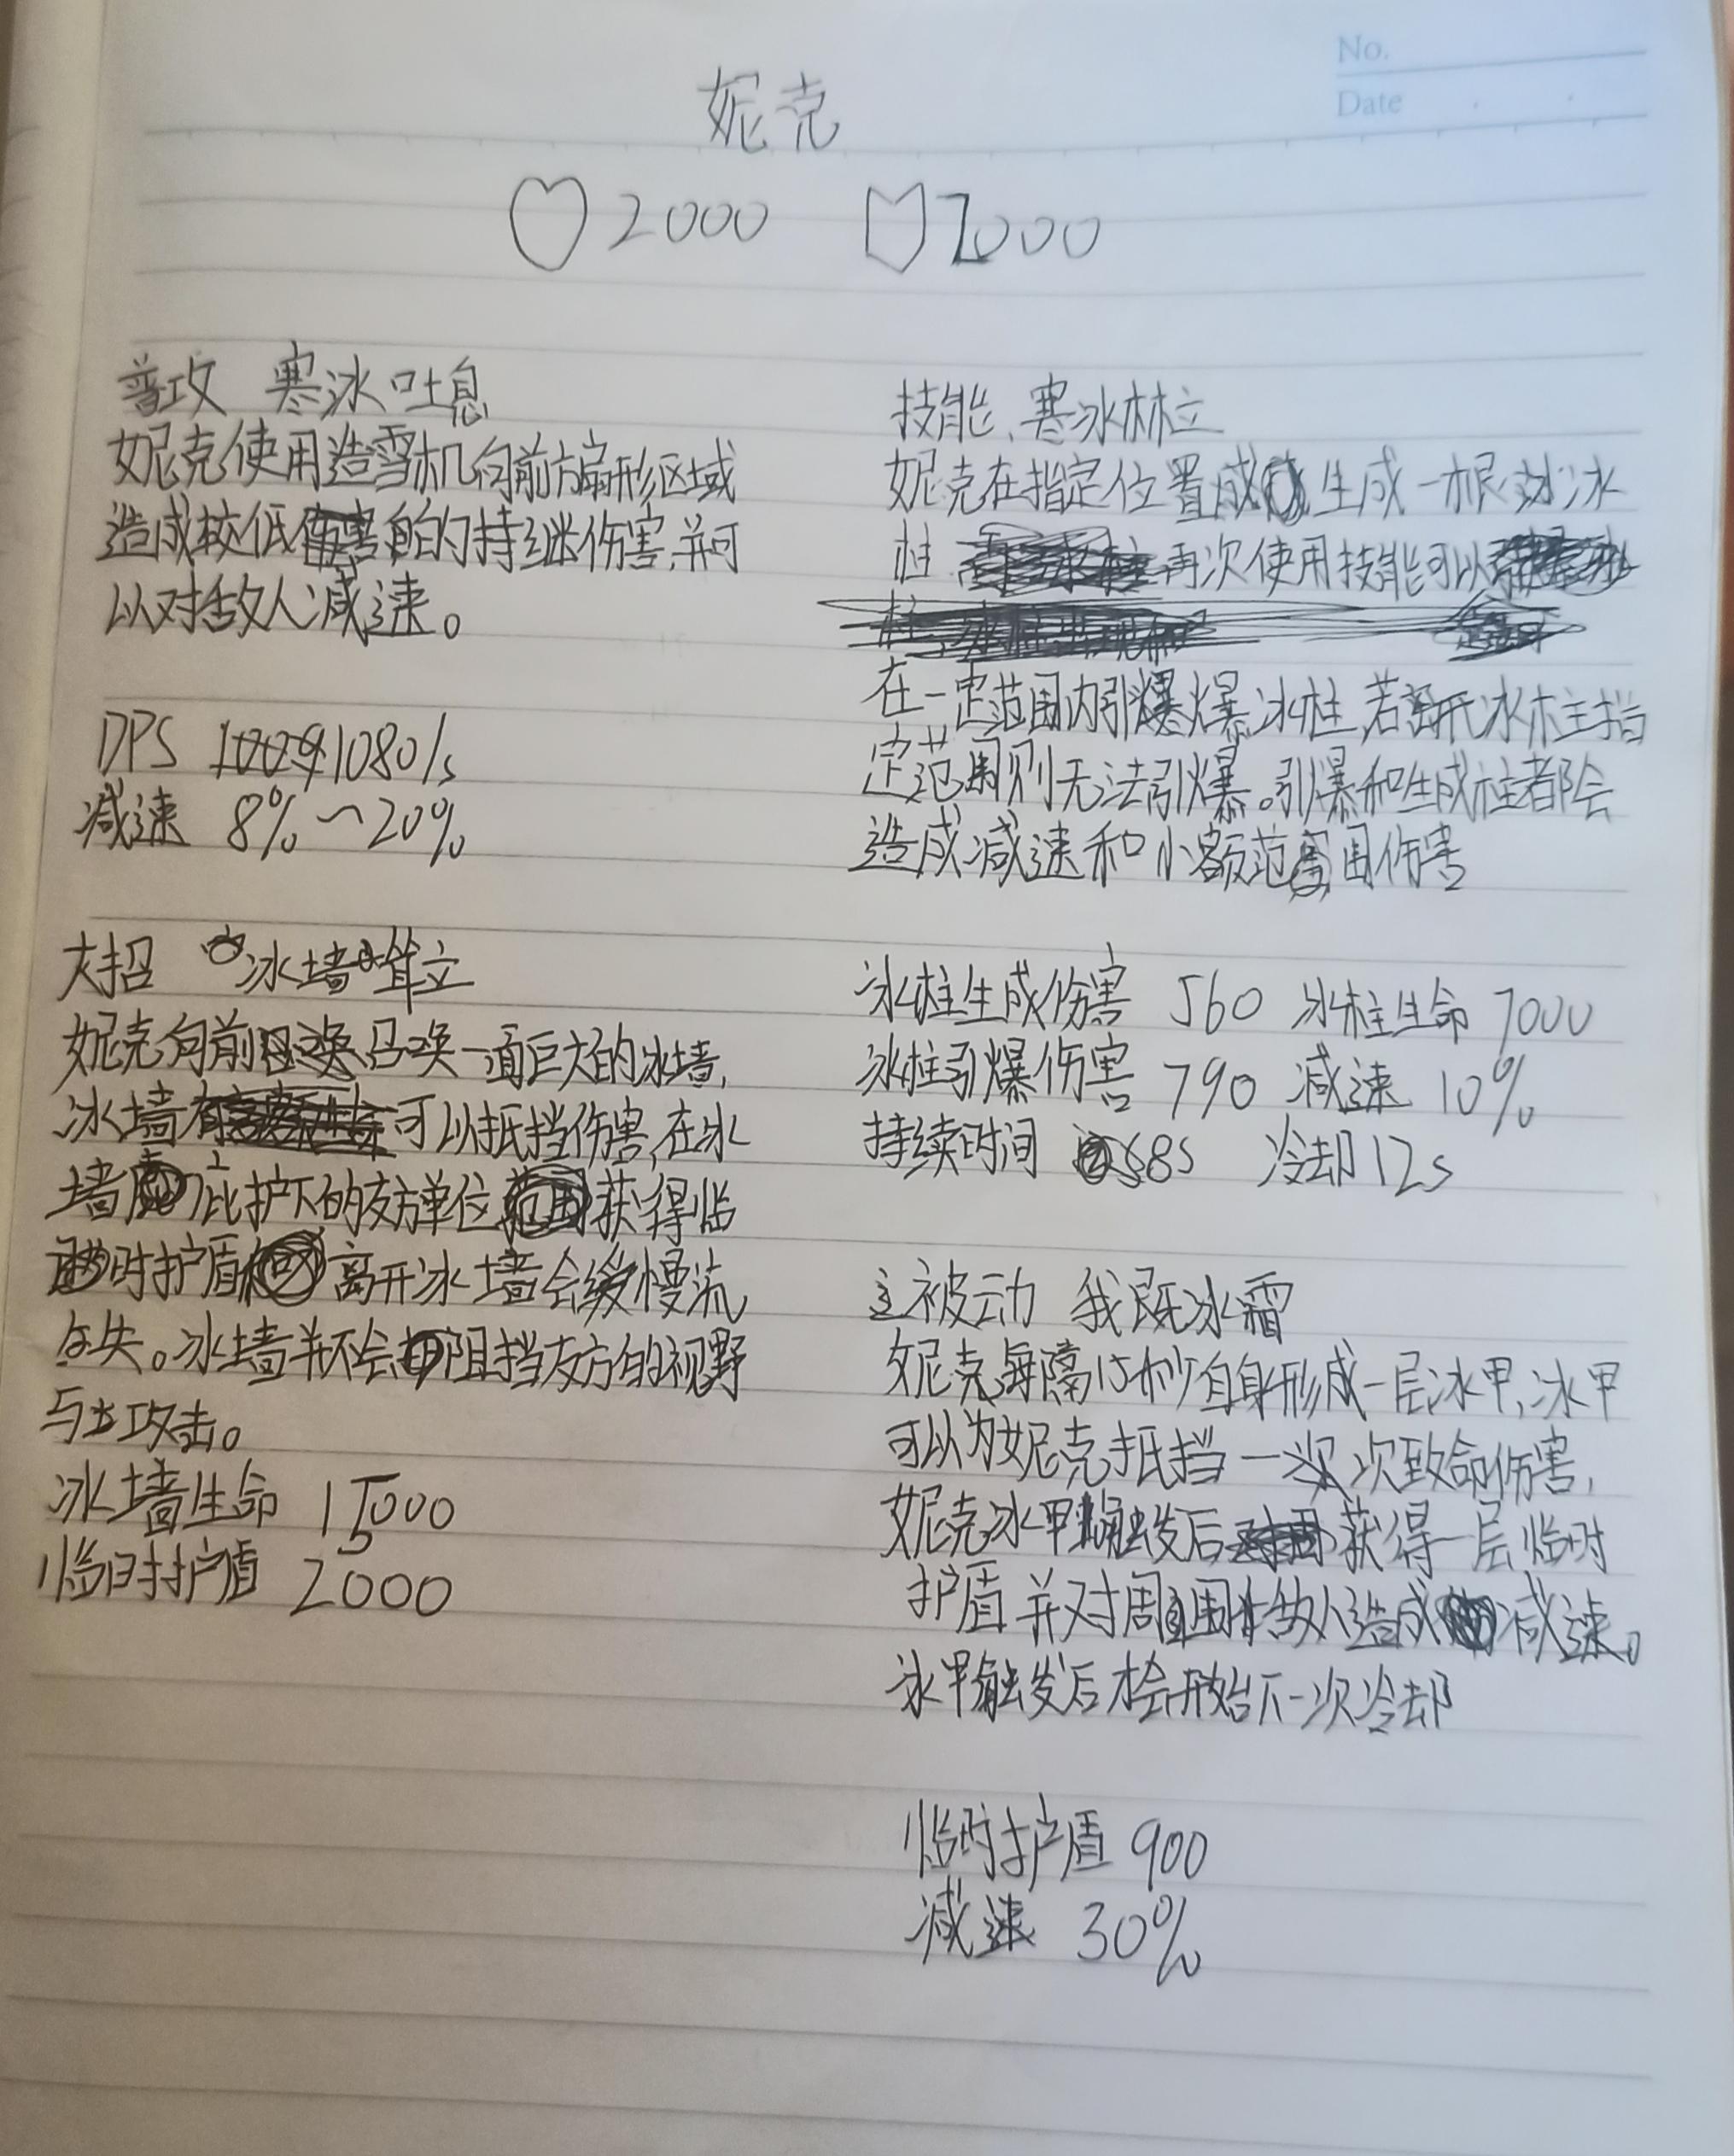 No.
Date
妮克
2000 1000
普攻 寒冰吐息
妮克使用造雪机向前方扇形区域
造成较低的持继伤害,并可
以对敌人减速。
DPS 1080/s
减速 8%~20%
大招 冰墙耸立
妮克向前召唤一面巨大的冰墙,
冰墙可以抵挡伤害,在冰
墙庇护下的友方单位获得临
时护盾离开冰墙会缓慢流
失。冰墙并不会阻挡友方的视野
与攻击。
冰墙生命 15000
临时护盾 2000
技能、寒冰林立
妮克在指定位置生成一根冰
柱 再次使用技能可以
在一定范围内引爆冰柱,若离开冰柱指
定范围则无法引爆。引爆和生成柱都会
造成减速和小额范围伤害
冰柱生成伤害 560 冰柱生命 7000
冰柱引爆伤害 790 减速 10%
持续时间 8s 冷却12s
被动 我既冰霜
妮克每隔15秒自身形成一层冰甲,冰甲
可以为妮克抵挡一次致命伤害,
妮克冰甲触发后获得一层临时
护盾并对周围敌人造成减速。
冰甲触发后才会开始下一次冷却
临时护盾 900
减速 30%